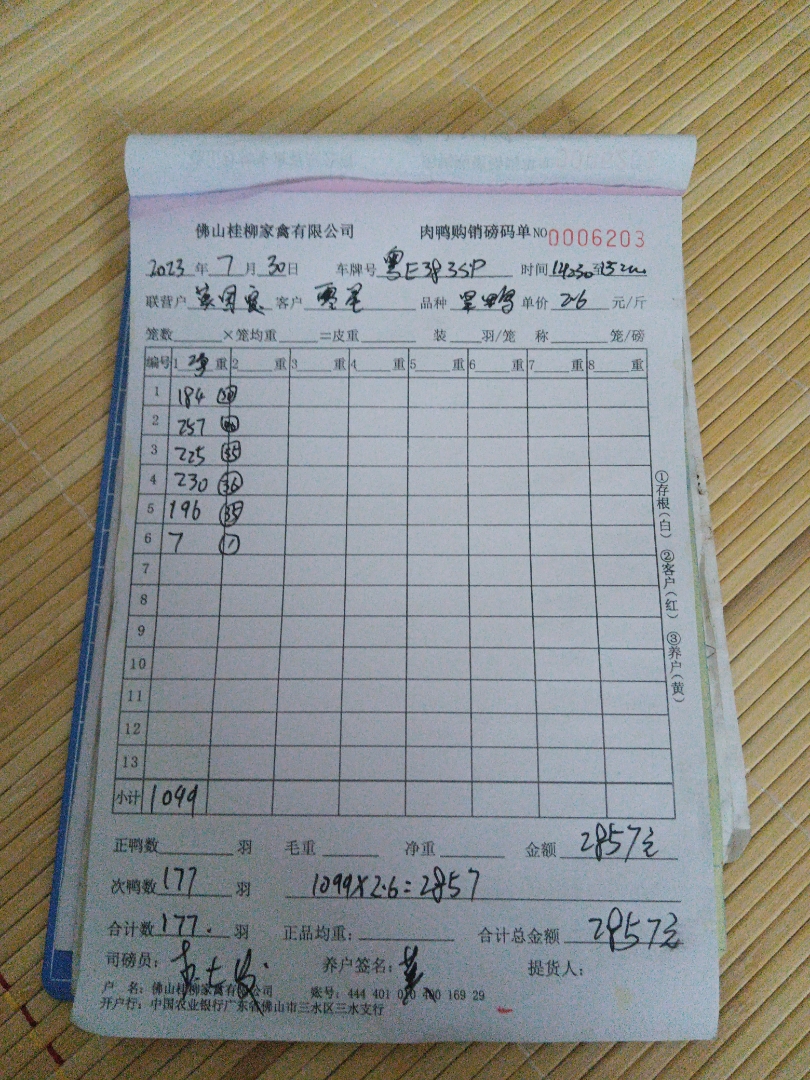 佛山桂柳家禽有限公司 肉鸭购销磅码单 NO 0006203
2023 年 7 月 30 日 车牌号 粤E383SP 时间 至
联营户 客户 品种 单价 2.6 元/斤
笼数 ×笼均重 =皮重 装 羽/笼 称 笼/磅
编号 1 净 重 2 重 3 重 4 重 5 重 6 重 7 重 8 重
1 184
2 257
3 225 35
4 230 36
5 196 35
6 7 1
7
8
9
10
11
12
13
小计 1099
①存根(白) ②客户(红) ③养户(黄)
正鸭数 羽 毛重 净重 金额 2857元
次鸭数 177 羽 1099×2.6=2857
合计数 177. 羽 正品均重: 合计总金额 2857元
司磅员: 养户签名: 提货人:
户 名: 佛山桂柳家禽有限公司 账号: 444 401 010 400 169 29
开户行: 中国农业银行广东省佛山市三水区三水支行